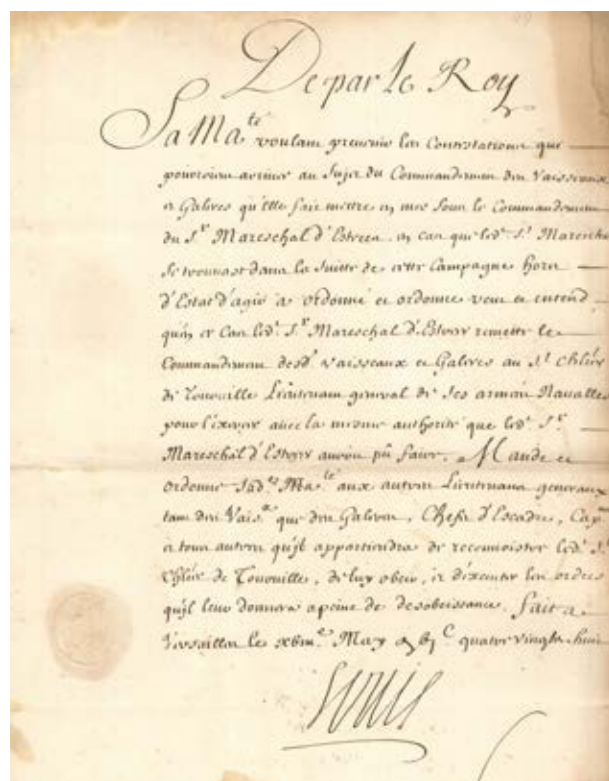 De par le Roy
Sa Ma.té voulant prevenir les Contestations que
pouroient arriver au Sujet du Commandement des Vaisseaux
et Galeres qu'elle fait mettre en mer sous le Commandement
du S.r Mareschal d'Estrees, en cas que led. S.r Mareschal
se trouvast dans la Suitte de cette Campagne hors
d'Estat d'agir a ordonné et ordonne veut et entend
qu'en ce Cas led. S.r Mareschal d'Estrees remette le
Commandement desd. vaisseaux et Galeres au S.r Chler
de Tourville Lieutenant general de ses armées Navalles
pour l'exercer avec la mesme authorité que led. S.r
Mareschal d'Estrees auroit pû faire. Mande et
ordonne Sad.te Ma.té aux autres Lieutenans generaux
tant des Vais.x que des Galeres, Chefs d'Escadre, Cap.nes
et tous autres qu'il appartiendra de reconnoistre led. S.r
Chler de Tourville, de luy obeir, et d'executer les ordres
qu'il leur donnera a peine de desobeissance. Fait a
Versailles le May quatre vingts huit
Louis